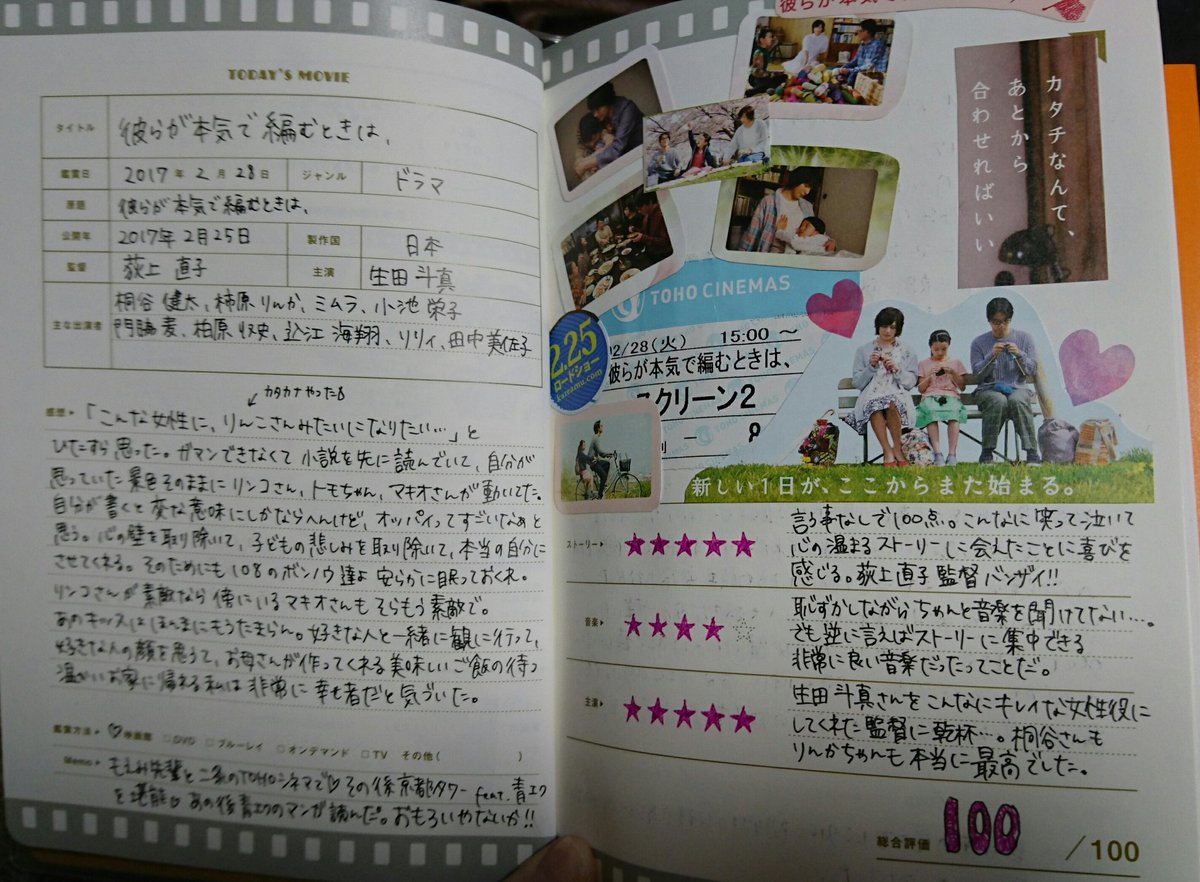 TODAY'S MOVIE
タイトル 彼らが本気で編むときは、
鑑賞日 2017年2月28日 ジャンル ドラマ
原題 彼らが本気で編むときは、
公開年 2017年2月25日 製作国 日本
監督 荻上 直子 主演 生田 斗真
主な出演者 桐谷 健太、柿原りんか、ミムラ、小池 栄子
門脇 麦、柏原 収史、込江 海翔、リリィ、田中 美佐子
カタカナやった
感想▸「こんな女性に、りんこさんみたいになりたい…」と
ひたすら思った。ガマンできなくて小説を先に読んでいて、自分が
思っていた景色そのままにリンコさん、トモちゃん、マキオさんが動いてた。
自分が書くと変な意味にしかならへんけど、オッパイってすごいなぁと
思う。心の壁を取り除いて、子どもの悲しみを取り除いて、本当の自分に
させてくれる。そのためにも108のボンノウ達よ 安らかに眠っておくれ。
リンコさんが素敵なら傍にいるマキオさんもそらもう素敵で。
あのキッスはほんまにもうたまらん。好きな人と一緒に観に行って、
好きな人の顔を思うて、お母さんが作ってくれる美味しいご飯の待つ
温かいお家に帰れる私は非常に幸せ者だと気づいた。
鑑賞方法▸ ♡映画館 □DVD □ブルーレイ □オンデマンド □TV その他( )
Memo▸ もえみ先輩と二条のTOHOシネマで♡その後京都タワー feat.青エク
を堪能♡ あの後青エクのマンガ読んだ。おもろいやないか!!
彼らが本気で
カタチなんて、
あとから
合わせればいい
TOHO CINEMAS
2.25
ロードショー
kareamu.com
2/28(火) 15:00～
彼らが本気で編むときは、
スクリーン2
新しい1日が、ここからまた始まる。
ストーリー▸ ★★★★★ 言う事なしで100点。こんなに笑って泣いて
心の温まるストーリーに会えたことに喜びを
感じる。荻上直子監督バンザイ!!
音楽▸ ★★★★☆ 恥ずかしながらちゃんと音楽を聞けてない…。
でも逆に言えばストーリーに集中できる
非常に良い音楽だったってことだ。
主演▸ ★★★★★ 生田斗真さんをこんなにキレイな女性役に
してくれた監督に乾杯…。桐谷さんも
りんかちゃんも本当に最高でした。
総合評価 100 /100